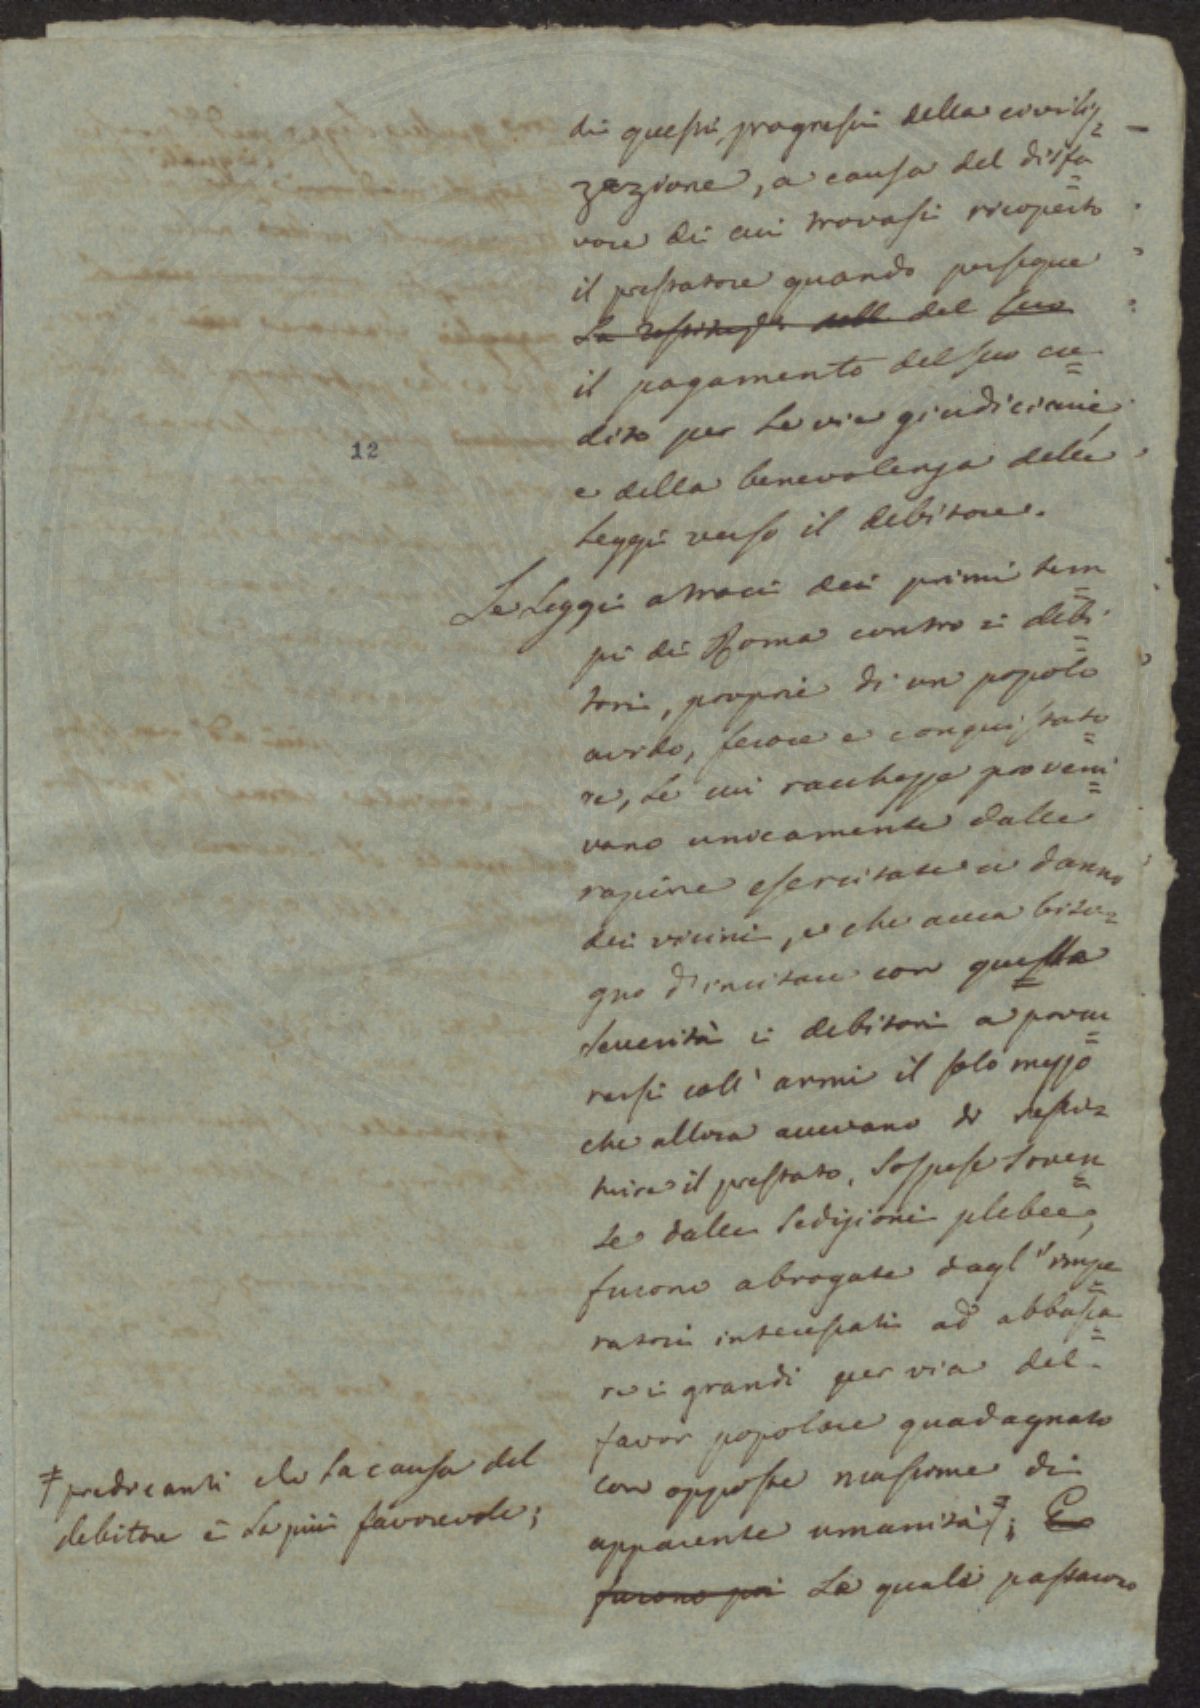 di questi progressi della civiliz=
zazione, a causa del disfa=
vore di cui trovasi ricoperto
il prestatore quando persegue
del suo
il pagamento del suo cre=
dito per le vie giudiciarie,
e della benevolenza delle
leggi verso il debitore.
12
Le leggi atroci dei primi tem=
pi di Roma contro i debi=
tori, proprie di un popolo
avido, feroce e conquistato=
re, le cui ricchezze proveni=
vano unicamente dalle
rapine esercitate a danno
dei vicini, e che avea biso=
gno d'incitare con questa
severità i debitori a procu=
rarsi coll'armi il solo mezzo
che allora avevano di resti=
tuire il prestato, sospese soven=
te dalle sedizioni plebee,
furono abrogate dagl'impe=
ratori interessati ad abbassa=
re i grandi per via del
favor popolare guadagnato
con opposte massime di
apparente umanità ǂ; E
furono poi Le quali passarono
ǂ predicanti che la causa del
debitore è la più favorevole;